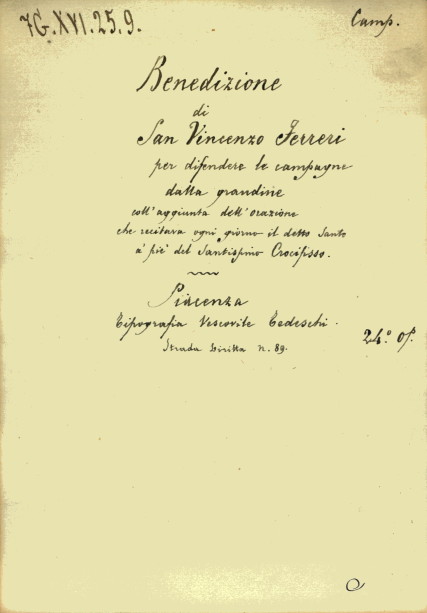 7G.XVI.25.9.
Camp.
Benedizione
di
San Vincenzo Ferreri
per difendere le campagne
dalla grandine
coll'aggiunta dell'orazione
che recitava ogni giorno il detto Santo
a' pie' del Santissimo Crocifisso.
Piacenza
Tipografia Vescovile Tedeschi.
Strada Diritta n. 89.
24.° Op.